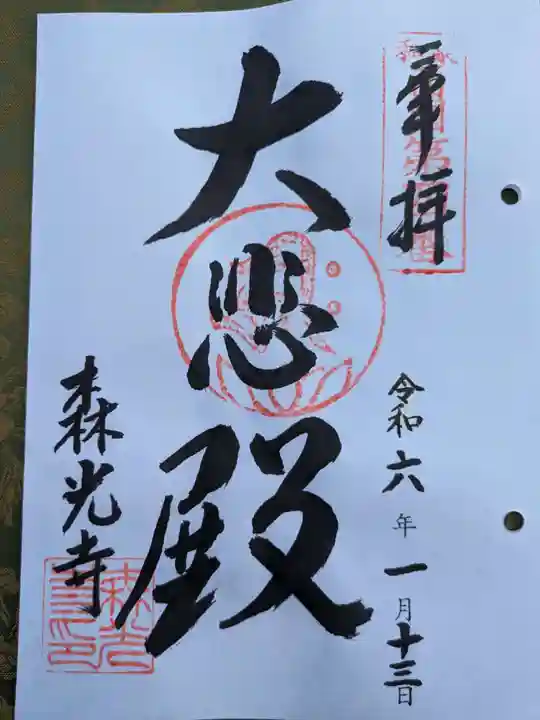 奉拝
令和六年一月十三日
大悲殿
森光寺